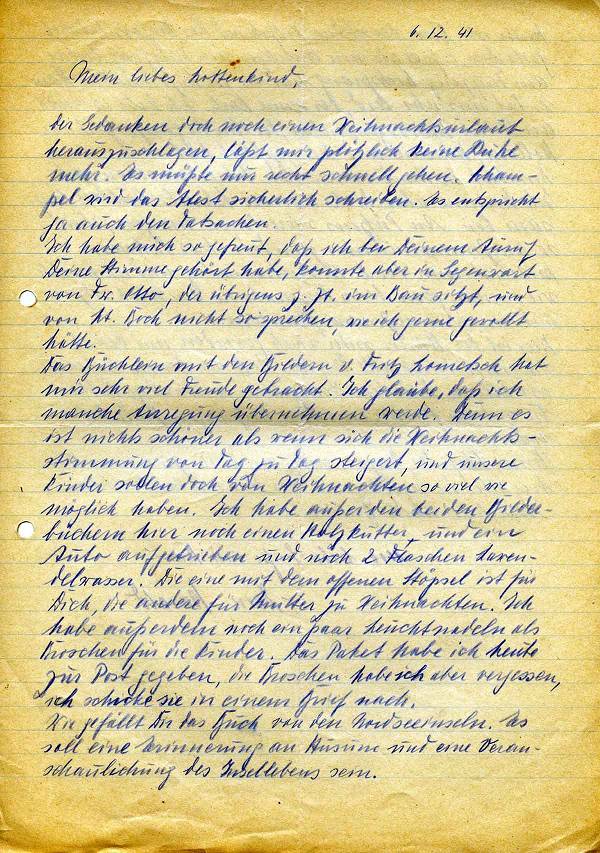 6. 12. 41
Mein liebes Lottenkind,
der Gedanken doch noch einen Weihnachtsurlaub
herauszuschlagen, läßt mir plötzlich keine Ruhe
mehr. Es müßte nur recht schnell gehen.
pel wird das Attest sicherlich schreiben. Es entspricht
ja auch den Tatsachen.
Ich habe mich so gefreut, daß ich bei Deinem Anruf
Deine Stimme gehört habe, konnte aber in Gegenwart
von Fw. Otto, der übrigens z. Zt. im Bau sitzt, und
von Lt. Koch nicht so sprechen, wie ich gerne gewollt
hätte.
Das Büchlein mit den Bildern v. Fritz hat
mir sehr viel Freude gebracht. Ich glaube, daß ich
manche Anregung übernehmen werde. Denn es
ist nichts schöner als wenn sich die Weihnachts-
stimmung von Tag zu Tag steigert, und unsere
Kinder sollen doch von Weihnachten so viel wie
möglich haben. Ich habe außer den beiden Bilder-
büchern hier noch einen Holzkutter, und ein
Auto aufgetrieben und noch 2 Flaschen Laven-
delwasser. Die eine mit dem offenen Stöpsel ist für
Dich, die andere für Mutter zu Weihnachten. Ich
habe außerdem noch ein paar Leuchtnadeln als
Broschen für die Kinder. Das Paket habe ich heute
zur Post gegeben, die Broschen habe ich aber vergessen,
ich schicke sie in einem Brief nach.
Wie gefällt Dir das Buch von den Nordseeinseln. Es
soll eine Erinnerung an Husum und eine Veran-
schaulichung des Insellebens sein.